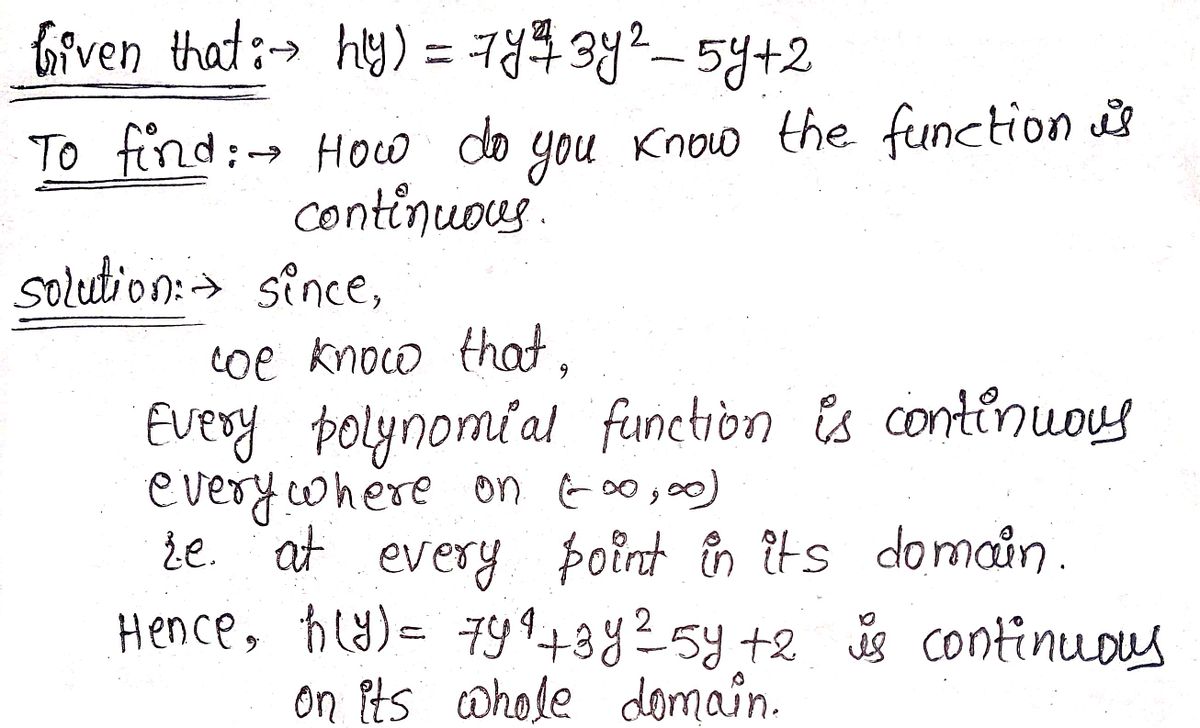 Given that :→ h(y) = 7y⁴+3y²-5y+2
To find :→ How do you know the function is
continuous.
solution:→ since,
we know that,
Every polynomial function is continuous
everywhere on (-∞,∞)
ie. at every point in its domain.
Hence, h(y) = 7y⁴+3y²-5y+2 is continuous
on its whole domain.